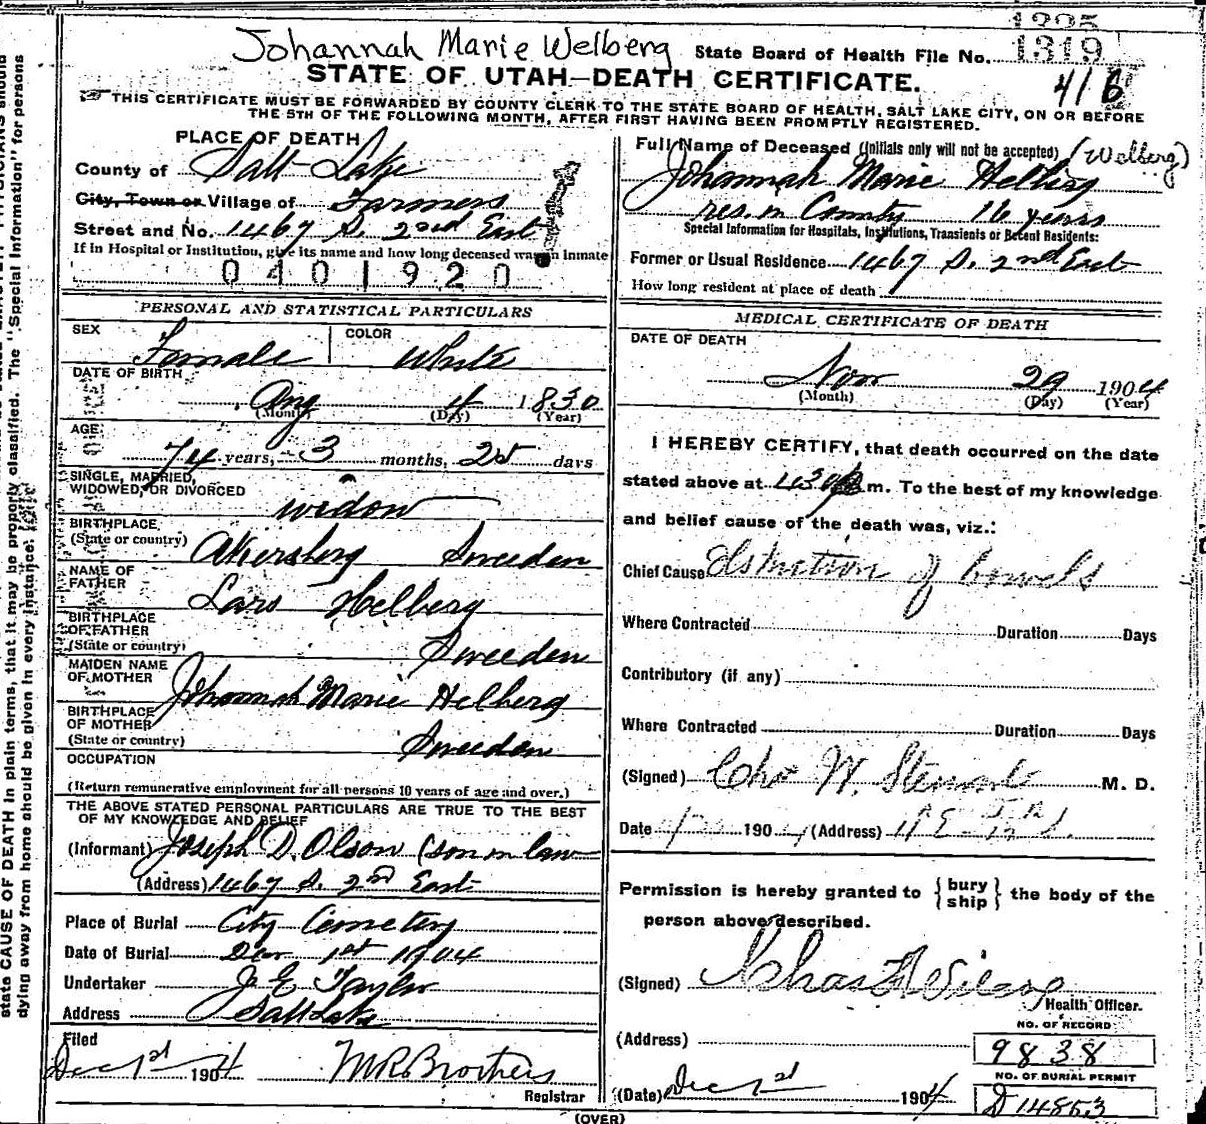 1319
Johannah Marie Welberg State Board of Health File No.
STATE OF UTAH—DEATH CERTIFICATE.
416
THIS CERTIFICATE MUST BE FORWARDED BY COUNTY CLERK TO THE STATE BOARD OF HEALTH, SALT LAKE CITY, ON OR BEFORE
THE 5TH OF THE FOLLOWING MONTH, AFTER FIRST HAVING BEEN PROMPTLY REGISTERED.
PLACE OF DEATH
County of Salt Lake
City, Town or Village of Farmers
Street and No. 1467 S. 2nd East
If in Hospital or Institution, give its name and how long deceased was an Inmate
0401920
PERSONAL AND STATISTICAL PARTICULARS
SEX Female COLOR White
DATE OF BIRTH
Aug 4 1830
(Month) (Day) (Year)
AGE
74 years, 3 months, 25 days
SINGLE, MARRIED,
WIDOWED, OR DIVORCED widow
BIRTHPLACE
(State or country) Akersberg Sweeden
NAME OF
FATHER Lars Helberg
BIRTHPLACE
OF FATHER
(State or country) Sweeden
MAIDEN NAME
OF MOTHER Johannah Marie Helberg
BIRTHPLACE
OF MOTHER
(State or country) Sweeden
OCCUPATION
(Return remunerative employment for all persons 10 years of age and over.)
THE ABOVE STATED PERSONAL PARTICULARS ARE TRUE TO THE BEST
OF MY KNOWLEDGE AND BELIEF
(Informant) Joseph D. Olson (son in law
(Address) 1467 S. 2nd East
Place of Burial City Cemetery
Date of Burial Dec 1st 1904
Undertaker J E Taylor
Address Salt Lake
Filed
Dec 1st 1904 M R Brothers
Registrar
Full Name of Deceased (Initials only will not be accepted) (Welberg)
Johannah Marie Helberg
res. in County 16 years
Special Information for Hospitals, Institutions, Transients or Recent Residents:
Former or Usual Residence 1467 S. 2nd East
How long resident at place of death
MEDICAL CERTIFICATE OF DEATH
DATE OF DEATH
Nov 29 1904
(Month) (Day) (Year)
I HEREBY CERTIFY, that death occurred on the date
stated above at m. To the best of my knowledge
and belief cause of the death was, viz.:
Chief Cause Obstruction of bowels
Where Contracted Duration Days
Contributory (if any)
Where Contracted Duration Days
(Signed) W. M. D.
Date 190 (Address)
Permission is hereby granted to {bury
ship} the body of the
person above described.
(Signed) Chas
Health Officer.
(Address)
NO. OF RECORD
9838
NO. OF BURIAL PERMIT
D 14853
(Date) Dec 1st 1904
(OVER)
state CAUSE OF DEATH in plain terms, that it may be properly classified. The "Special Information" for persons
dying away from home should be given in every instance.